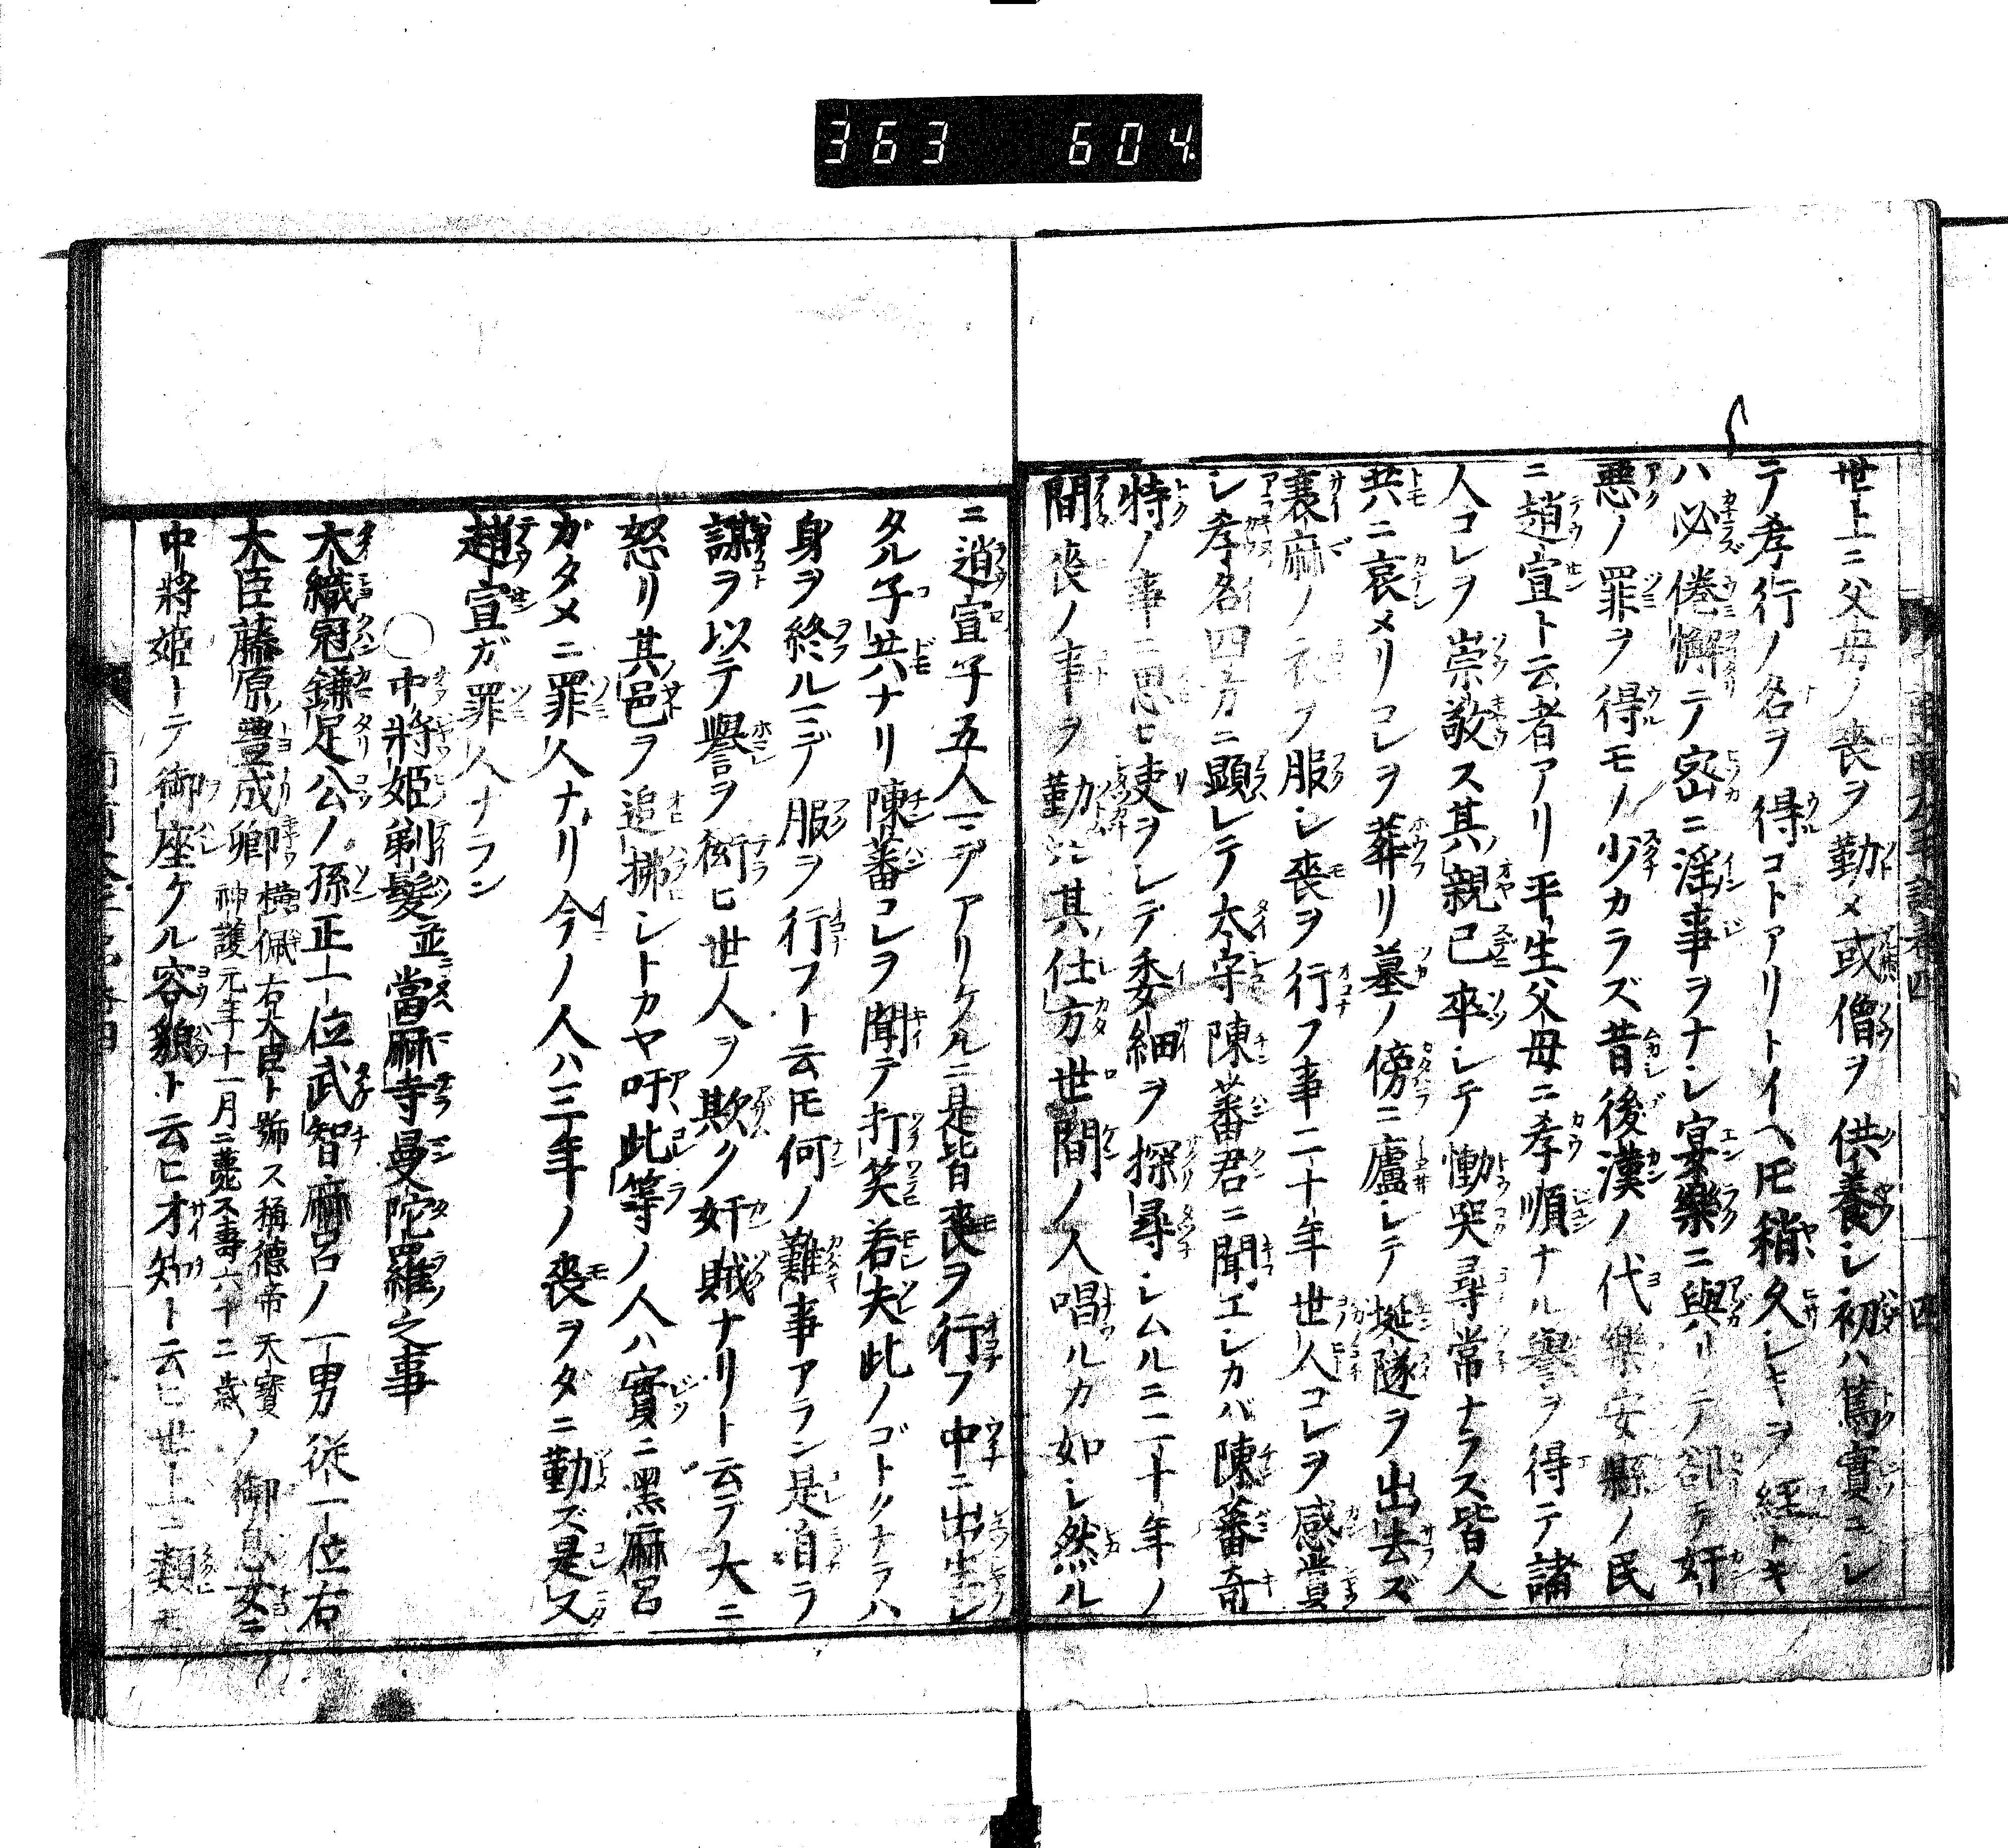 363 604
世上ニ父母ノ喪ヲ勤メ或僧ヲ供養シ初ハ篤實ニシ
テ孝行ノ名ヲ得コトアリトイヘ𪜈稍久シキヲ経トキ
ハ必倦懈テ密ニ淫事ヲナシ宴樂ニ與リテ却テ奸
悪ノ罪ヲ得モノ少カラズ昔後漢ノ代樂安縣ノ民
ニ趙宣ト云者アリ平生父母ニ孝順ナル譽ヲ得テ諸
人コレヲ崇敬ス其親已卒シテ慟哭尋常ナラス皆人
共ニ哀メリコレヲ葬リ墓ノ傍ニ廬シテ埏隧ヲ出去ズ
衰麻ノ衣ヲ服シ喪ヲ行フ事二十年世人コレヲ感賞
シ孝名四方ニ顕レテ太守陳蕃君ニ聞エシカバ陳蕃奇
特ノ事ニ思ヒ吏ヲシテ委細ヲ探尋シムルニ二十年ノ
間喪ノ事ヲ勤ル其仕方世間ノ人唱ルカ如シ然ル
ニ趙宣子五人マデアリケルニ是皆喪ヲ行フ中ニ出生シ
タル子共ナリ陳蕃コレヲ聞テ打笑若夫此ノゴトクナラハ
身ヲ終ルマデノ服ヲ行フト云𪜈何ノ難事アラン是自ラ
謀ヲ以テ譽ヲ衒ヒ世人ヲ欺ク奸賊ナリト云テ大ニ
怒リ其邑ヲ追拂シトカヤ吁此等ノ人ハ實ニ黒麻呂
ガタメニ罪人ナリ今ノ人ハ三年ノ喪ヲダニ勤ズ是又
趙宣ガ罪人ナラン
○中將姫剃髪並當麻寺曼陀羅之事
大織冠鎌足公ノ孫正一位武智麻呂ノ一男従一位右
大臣藤原豊成卿横佩右大臣ト號ス稱徳帝天寳神護元年十一月ニ薨ス壽六十二歳ノ御息女ニ
中將姫トテ御座ケル容貌ト云ヒ才知ト云ヒ世上ニ類モ